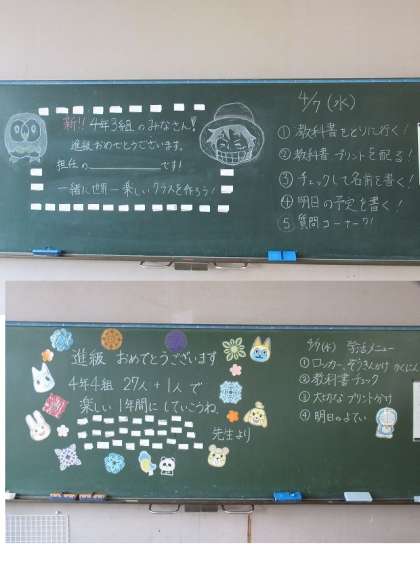 新!! 4年3組のみなさん!
進級おめでとうございます。
担任の　　　　です!
一緒に世界一楽しいクラスを作ろう!
4/7 (水)
① 教科書をとりに行く!
② 教科書プリントを配る!
③ チェックして名前を書く!
④ 明日の予定を書く!
⑤ 質問コーナー!
進級 おめでとうございます
4年4組 27人+1人で
楽しい1年間にしていこうね。
先生より
4/7(水) 学活メニュー
① ロッカー、ぞうきんかけ かくにん
② 教科書チェック
③ 大切なプリント分け
④ 明日のよてい